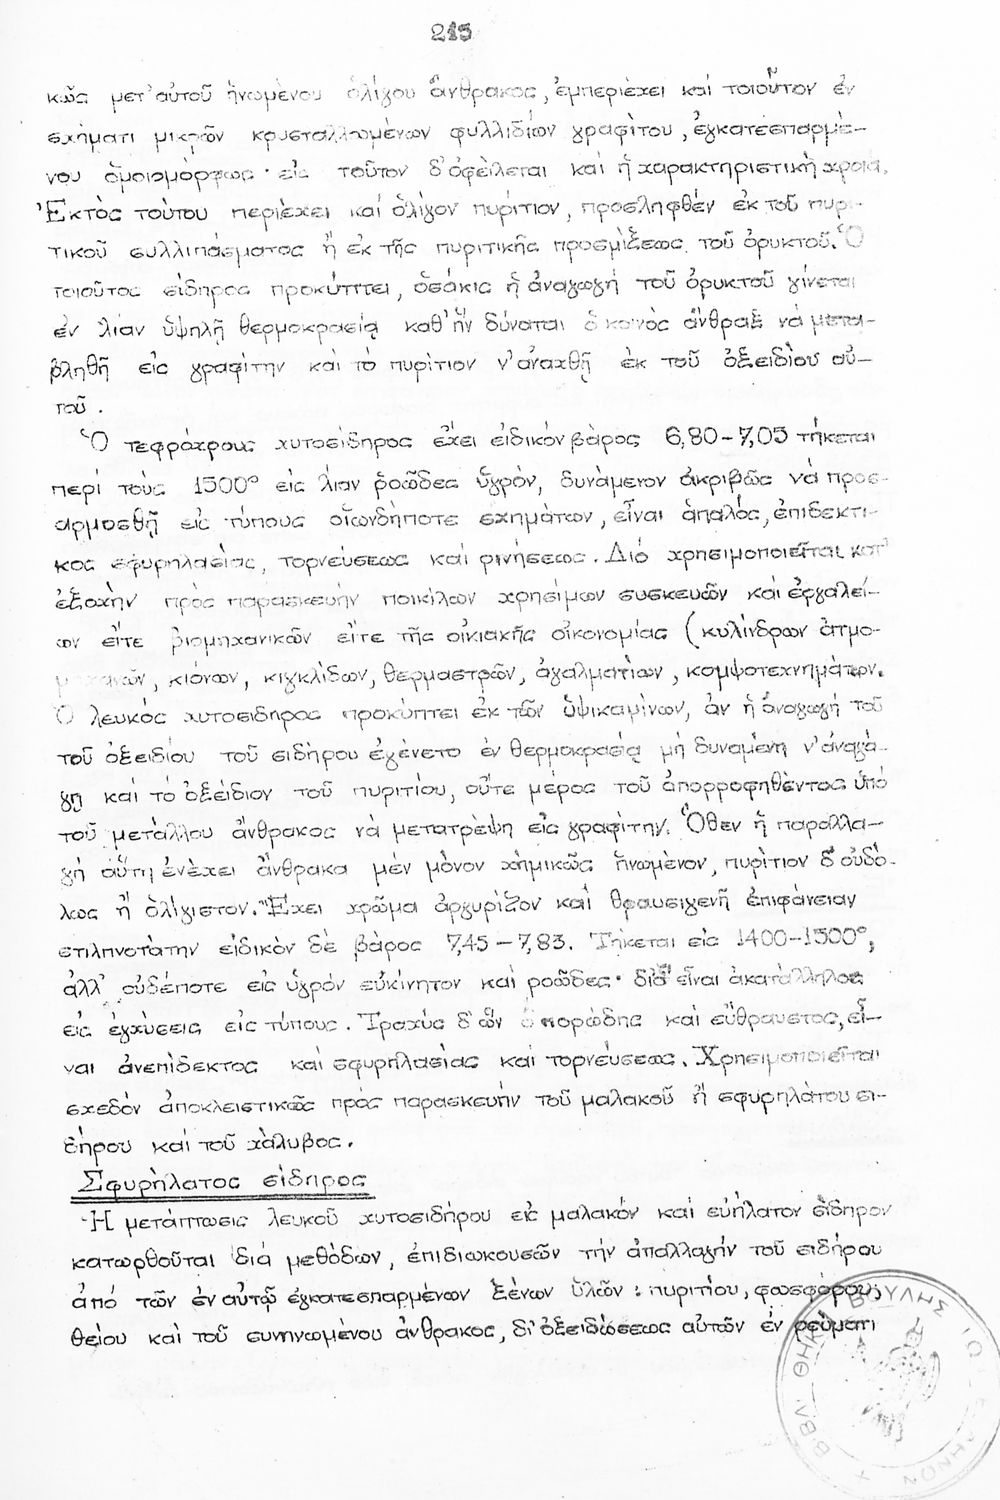 215
κῶς μετ' αὐτοῦ ἡνωμένου ὀλίγου ἄνθρακος, ἐμπεριέχει καί τοιοῦτον ἐν
σχήματι μικρῶν κρυσταλλωμένων φυλλιδίων γραφίτου, ἐγκατεσπαρμέ-
νου ὁμοιομόρφως· εἰς τοῦτον δ' ὀφείλεται καί ἡ χαρακτηριστική χροιά.
Ἐκτός τούτου περιέχει καί ὀλίγον πυρίτιον, προσληφθέν ἐκ τοῦ πυρι-
τικοῦ συλλιπάσματος ἤ ἐκ τῆς πυριτικῆς προσμίξεως τοῦ ὀρυκτοῦ. Ὁ
τοιοῦτος σίδηρος προκύπτει, ὁσάκις ἡ ἀναγωγή τοῦ ὀρυκτοῦ γίνεται
ἐν λίαν ὑψηλῇ θερμοκρασίᾳ καθ' ἥν δύναται ὁ κοινός ἄνθραξ νά μετα-
βληθῇ εἰς γραφίτην καί τό πυρίτιον ν' ἀναχθῇ ἐκ τοῦ ὀξειδίου αὐ-
τοῦ.
Ὁ τεφρόχρους χυτοσίδηρος ἔχει εἰδικόν βάρος 6,80-7,05 τήκεται
περί τούς 1500° εἰς λίαν ῥοῶδες ὑγρόν, δυνάμενον ἀκριβῶς νά προσ-
αρμοσθῇ εἰς τύπους οἱωνδήποτε σχημάτων, εἶναι ἁπαλός, ἐπιδεκτι-
κος σφυρηλασίας, τορνεύσεως καί ρινήσεως. Διό χρησιμοποιεῖται κατ'
ἐξοχήν πρός παρασκευήν ποικίλων χρησίμων συσκευῶν καί ἐργαλεί-
ων εἴτε βιομηχανικῶν εἴτε τῆς οἰκιακῆς οἰκονομίας (κυλίνδρων ἀτμο-
μηχανῶν, κιόνων, κιγκλίδων, θερμαστρῶν, ἀγαλματίων, κομψοτεχνημάτων.
Ὁ λευκός χυτοσίδηρος προκύπτει ἐκ τῶν ὑψικαμίνων, ἄν ἡ ἀναγωγή τοῦ
τοῦ ὀξειδίου τοῦ σιδήρου ἐγένετο ἐν θερμοκρασίᾳ μή δυναμένῃ ν' ἀναγά-
γῃ καί τό ὀξείδιον τοῦ πυριτίου, οὔτε μέρος τοῦ ἀπορροφηθέντος ὑπό
τοῦ μετάλλου ἄνθρακος νά μετατρέψῃ εἰς γραφίτην. Ὅθεν ἡ παραλλα-
γή αὕτη ἐνέχει ἄνθρακα μέν μόνον χημικῶς ἡνωμένον, πυρίτιον δ' οὐδό-
λως ἤ ὀλίγιστον. Ἔχει χρῶμα ἀργυρίζον καί θραυσιγενῆ ἐπιφάνειαν
στιλπνοτάτην εἰδικόν δέ βάρος 7,45-7,83. Τήκεται εἰς 1400-1500°,
ἀλλ' οὐδέποτε εἰς ὑγρόν εὐκίνητον καί ροῶδες· διό εἶναι ἀκατάλληλος
εἰς ἐγχύσεις εἰς τύπους. Τραχύς δ' ὤν πορώδης καί εὔθραυστος, εἶ-
ναι ἀνεπίδεκτος καί σφυρηλασίας καί τορνεύσεως. Χρησιμοποιεῖται
σχεδόν ἀποκλειστικῶς πρός παρασκευήν τοῦ μαλακοῦ ἤ σφυρηλάτου σι-
δήρου καί τοῦ χάλυβος.
Σφυρήλατος σίδηρος
Ἡ μετάπτωσις λευκοῦ χυτοσιδήρου εἰς μαλακόν καί εὐήλατον σίδηρον
κατωρθοῦται διά μεθόδων, ἐπιδιωκουσῶν τήν ἀπαλλαγήν τοῦ σιδήρου
ἀπό τῶν ἐν αὐτῷ ἐγκατεσπαρμένων ξένων ὑλῶν: πυριτίου, φωσφόρου,
θείου καί τοῦ συνηνωμένου ἄνθρακος, δι' ὀξειδώσεως αὐτῶν ἐν ρεύματι
ΒΙΒΛΙΟΘΗΚΗ ΒΟΥΛΗΣ ΤΩΝ ΕΛΛΗΝΩΝ